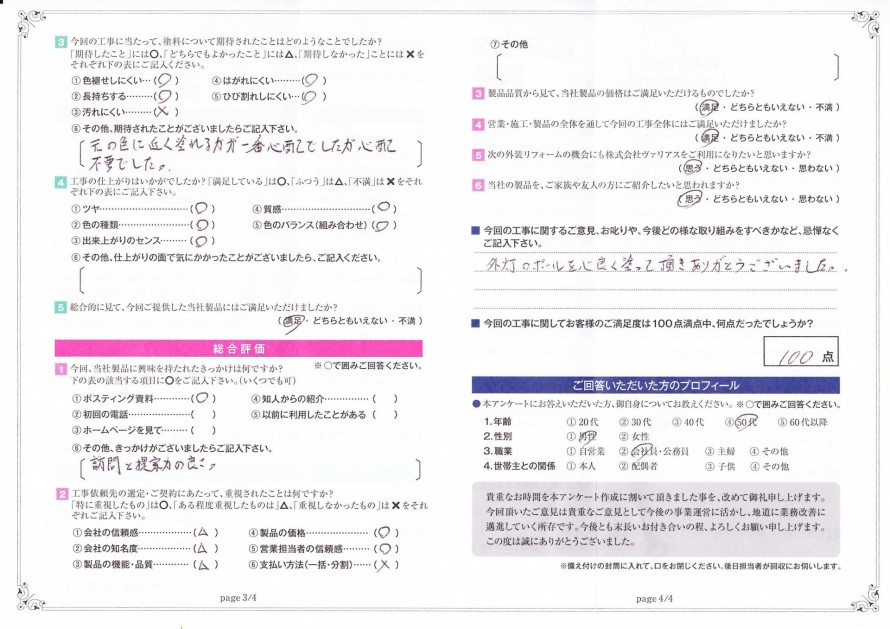 3 今回の工事に当たって、塗料について期待されたことはどのようなことでしたか?
「期待したこと」には〇、「どちらでもよかったこと」には△、「期待しなかった」ことには×を
それぞれ下の表にご記入ください。
①色褪せしにくい…(〇) ④はがれにくい………(〇)
②長持ちする………(〇) ⑤ひび割れしにくい…(〇)
③汚れにくい………(×)
⑥その他、期待されたことがございましたらご記入下さい。
元の色に近く塗れるカが一番心配でしたが心配
不要でした。
4 工事の仕上がりはいかがでしたか?「満足している」は〇、「ふつう」は△、「不満」は×をそれ
ぞれ下の表にご記入下さい。
①ツヤ………………………(〇) ④質感………………………(〇)
②色の種類…………………(〇) ⑤色のバランス(組み合わせ)(〇)
③出来上がりのセンス………(〇)
⑥その他、仕上がりの面で気にかかったことがございましたら、ご記入ください。
5 総合的に見て、今回ご提供した当社製品にはご満足いただけましたか?
(満足・どちらともいえない・不満)
総合評価
1 今回、当社製品に興味を持たれたきっかけは何ですか? ※〇で囲みご回答ください。
下の表の該当する項目に〇をご記入下さい。(いくつでも可)
①ポスティング資料…………(〇) ④知人からの紹介…………( )
②初回の電話………………( ) ⑤以前に利用したことがある( )
③ホームページを見て………( )
⑥その他、きっかけがございましたらご記入下さい。
訪問と提案力の良さ。
2 工事依頼先の選定・ご契約にあたって、重視されたことは何ですか?
「特に重視したもの」は〇、「ある程度重視したものは」△、「重視しなかったもの」は×をそれ
ぞれご記入下さい。
①会社の信頼感……………(△) ④製品の価格………………(〇)
②会社の知名度……………(△) ⑤営業担当者の信頼感………(〇)
③製品の機能・品質…………(△) ⑥支払い方法(一括・分割)……(×)
page 3/4
⑦その他
3 製品品質から見て、当社製品の価格はご満足いただけるものでしたか?
(満足・どちらともいえない・不満)
4 営業・施工・製品の全体を通して今回の工事全体にはご満足いただけましたか?
(満足・どちらともいえない・不満)
5 次の外装リフォームの機会にも株式会社ヴァリアスをご利用になりたいと思いますか?
(思う・どちらともいえない・思わない)
6 当社の製品を、ご家族や友人の方にご紹介したいと思われますか?
(思う・どちらともいえない・思わない)
■今回の工事に関するご意見、お叱りや、今後どの様な取り組みをすべきかなど、忌憚なく
ご記入下さい。
外灯のポールを心良く塗って頂きありがとうございました。
■今回の工事に関してお客様のご満足度は100点満点中、何点だったでしょうか?
100 点
ご回答いただいた方のプロフィール
●本アンケートにお答えいただいた方、御自身についてお教えください。※〇で囲みご回答ください。
1.年齢 ①20代 ②30代 ③40代 ④50代 ⑤60代以降
2.性別 ①男性 ②女性
3.職業 ①自営業 ②会社員・公務員 ③主婦 ④その他
4.世帯主との関係 ①本人 ②配偶者 ③子供 ④その他
貴重なお時間を本アンケート作成に割いて頂きました事を、改めて御礼申し上げます。
今回頂いたご意見は貴重なご意見として今後の事業運営に活かし、地道に業務改善に
邁進していく所存です。今後とも末長いお付き合いの程、よろしくお願い申し上げます。
この度は誠にありがとうございました。
※備え付けの封筒に入れて、口をお閉じください。後日担当者が回収にお伺いします。
page 4/4